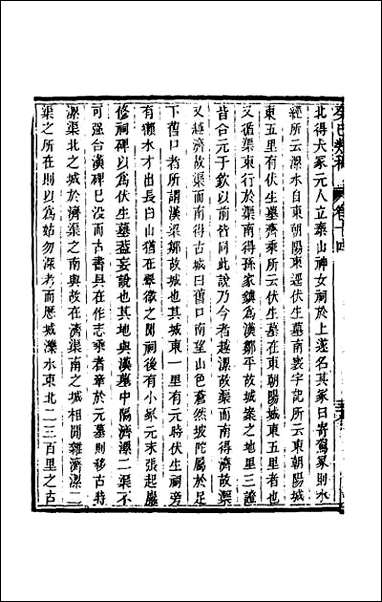 癸巳類稿 卷十四
北得大冢元人立泰山神女祠於上遂名其冢曰寄駕冢則水
經所云漯水自東朝陽東逕伏生墓南寰宇記所云東朝陽城
東五里有伏生墓齊乘所云伏生墓在東朝陽城東五里者也
又循渠東行於渠南得孫家鎮爲漢鄒平故城案之地里三證
昔合元于欽以前皆同此說乃今者越漯故渠而南得濟故渠
又越濟故渠而南得古城曰舊口南望山色蒼然坡陀屬於足
下舊口者所謂漢梁鄒故城也其城東一里有元時伏生祠旁
有獺水才出長白山猶在舉歛之閒祠後有小冢元末張起巖
修祠碑以爲伏生墓葢妄說也其地與漢墓中隔濟漯二渠不
可强合漢碑已沒而古書具在作志乘者牽於元墓則移古時
漯渠北之城於濟渠之南與故在濟渠南之城相閒雜濟漯二
渠之所在則以爲姑勿深考而歷城濼水東北二三百里之古